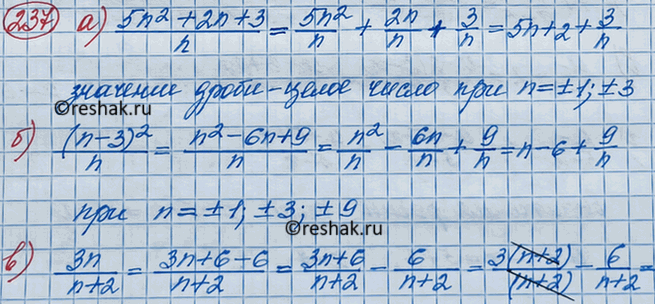 237 а) (5n² + 2n + 3)/n = 5n²/n + 2n/n + 3/n = 5n + 2 + 3/n
значение дроби - целое число при n = ±1; ±3
©reshak.ru
б) (n-3)²/n = (n² - 6n + 9)/n = n²/n - 6n/n + 9/n = n - 6 + 9/n
при n = ±1; ±3; ±9
©reshak.ru
в) 3n/(n+2) = (3n+6-6)/(n+2) = (3n+6)/(n+2) - 6/(n+2) = 3(n+2)/(n+2) - 6/(n+2) =